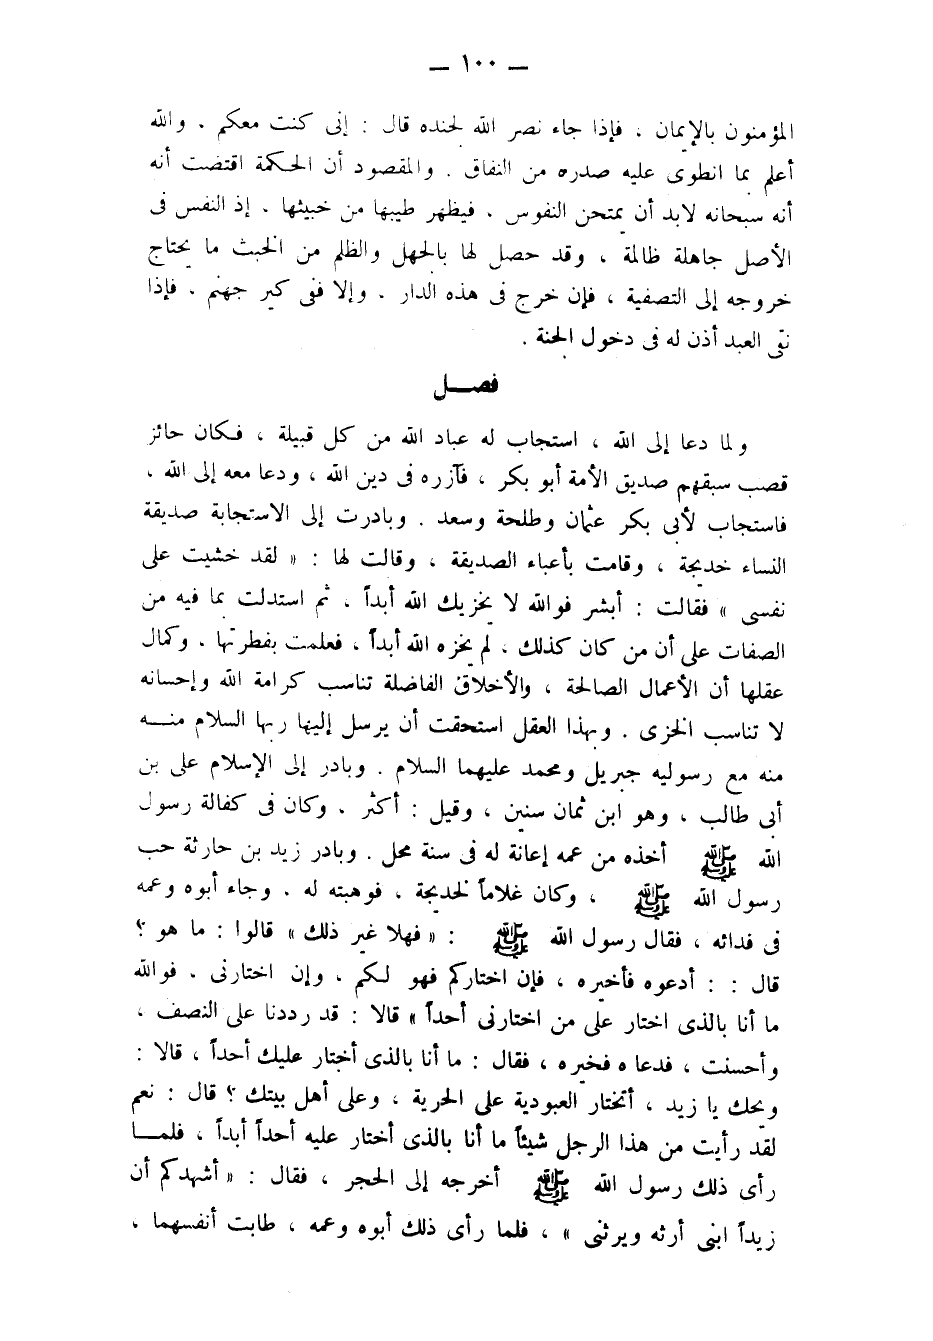 — ١٠٠ —
المؤمنون بالإيمان ، فإذا جاء نصر الله لجنده قال : إنى كنت معكم . والله
أعلم بما انطوى عليه صدره من النفاق . والمقصود أن الحكمة اقتضت أنه
أنه سبحانه لابد أن يمتحن النفوس . فيظهر طيبها من خبيثها . إذ النفس فى
الأصل جاهلة ظالمة ، وقد حصل لها بالجهل والظلم من الخبث ما يحتاج
خروجه إلى التصفية ، فإن خرج فى هذه الدار . وإلا ففى كير جهنم . فإذا
نقى العبد أذن له فى دخول الجنة .
فصــل
ولما دعا إلى الله ، استجاب له عباد الله من كل قبيلة ، فكان حائز
قصب سبقهم صديق الأمة أبو بكر ، فآزره فى دين الله ، ودعا معه إلى الله ،
فاستجاب لأبى بكر عثمان وطلحة وسعد . وبادرت إلى الاستجابة صديقة
النساء خديجة ، وقامت بأعباء الصديقة ، وقالت لها : « لقد خشيت على
نفسى » فقالت : أبشر فوالله لا يخزيك الله أبداً ، ثم استدلت بما فيه من
الصفات على أن من كان كذلك ، لم يخزه الله أبداً ، فعلمت بفطرتها . وكمال
عقلها أن الأعمال الصالحة ، والأخلاق الفاضلة تناسب كرامة الله وإحسانه
لا تناسب الخزى . وبهذا العقل استحقت أن يرسل إليها ربها السلام منــه
منه مع رسوليه جبريل ومحمد عليهما السلام . وبادر إلى الإسلام على بن
أبى طالب ، وهو ابن ثمان سنين ، وقيل : أكثر . وكان فى كفالة رسول
الله ﷺ أخذه من عمه إعانة له فى سنة محل . وبادر زيد بن حارثة حب
رسول الله ﷺ ، وكان غلاماً لخديجة ، فوهبته له . وجاء أبوه وعمه
فى فدائه ، فقال رسول الله ﷺ : « فهلا غير ذلك » قالوا : ما هو ؟
قال : : أدعوه فأخبره ، فإن اختاركم فهو لكم . وإن اختارنى . فوالله
ما أنا بالذى اختار على من اختارنى أحداً » قالا : قد رددنا على النصف ،
وأحسنت ، فدعا ه فخيره ، فقال : ما أنا بالذى أختار عليك أحداً ، قالا :
ويحك يا زيد ، أتختار العبودية على الحرية ، وعلى أهل بيتك ؟ قال : نعم
لقد رأيت من هذا الرجل شيئاً ما أنا بالذى أختار عليه أحداً أبداً ، فلمــا
رأى ذلك رسول الله ﷺ أخرجه إلى الحجر ، فقال : « أشهدكم أن
زيداً ابنى أرثه ويرثنى » ، فلما رأى ذلك أبوه وعمه ، طابت أنفسهما ،